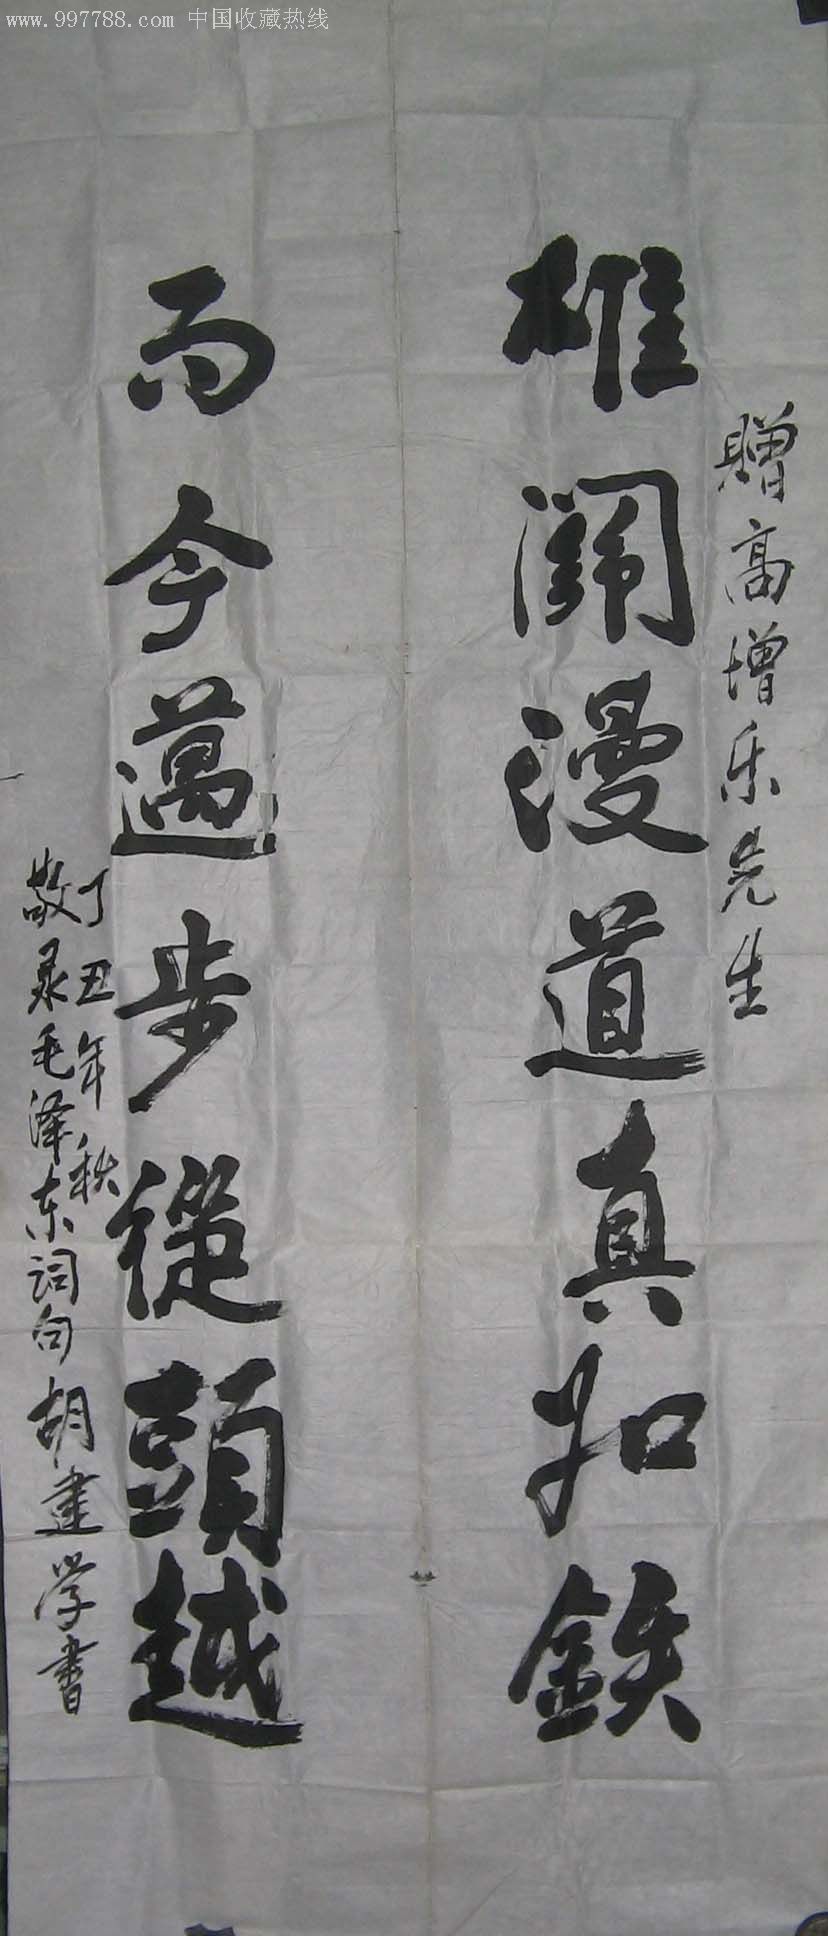 www.997788.com 中国收藏热线
贈高增乐先生
雄関漫道真如鉄
而今邁步從頭越
丁丑年秋
敬录毛泽东词句胡建学書